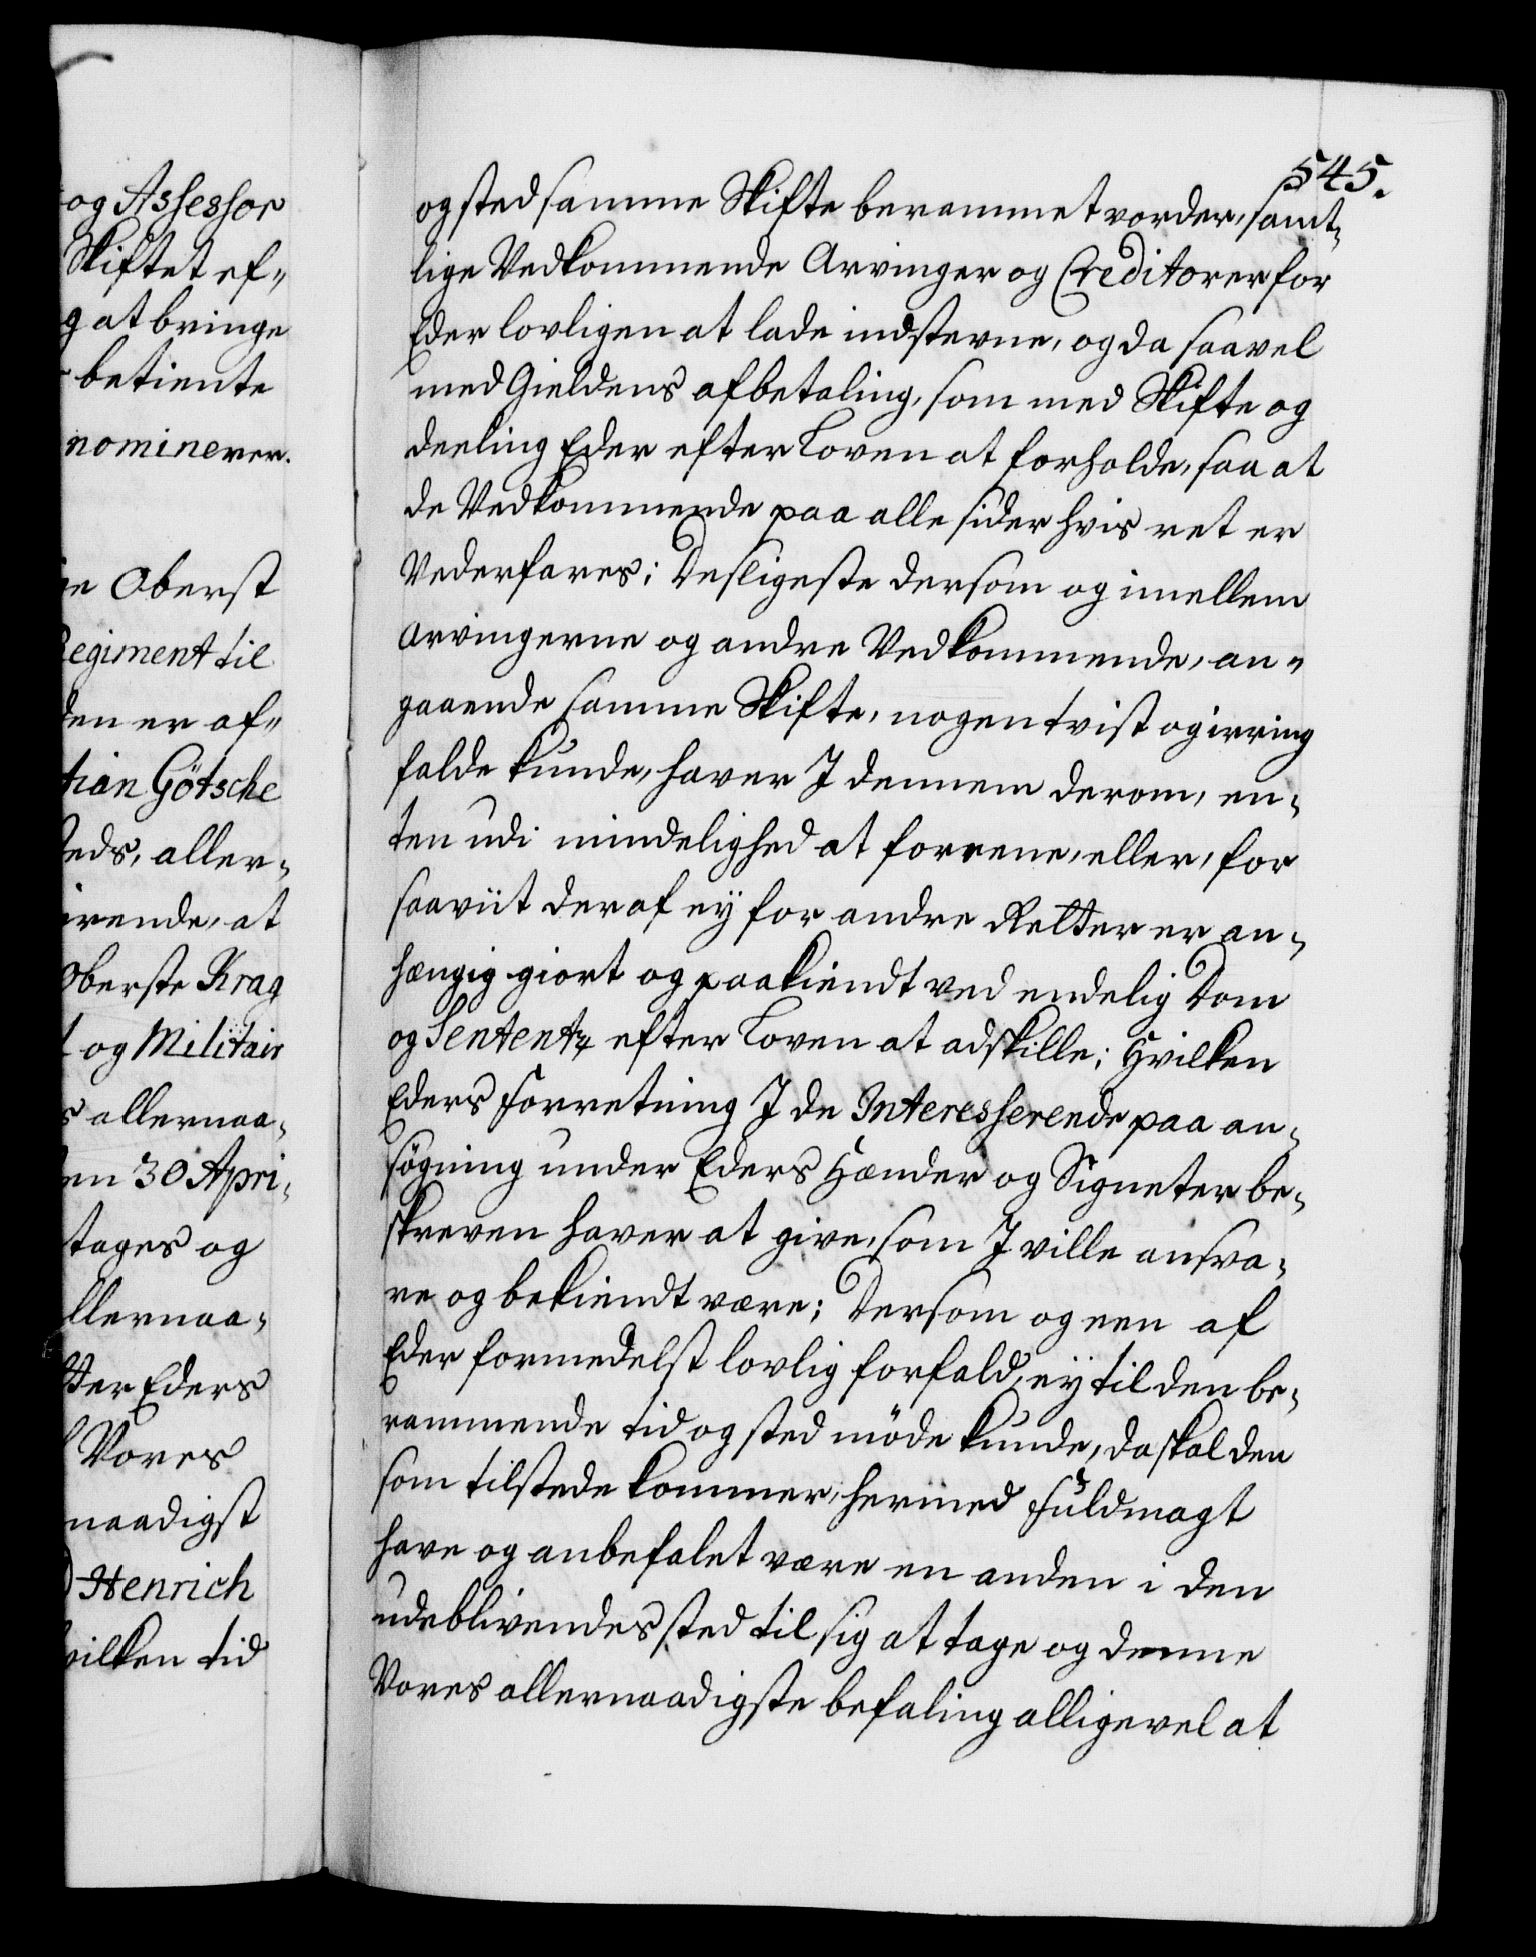 og Assessor
Skiftet ef„
g at bringe
betiente
nominerer.
Oberst
Regiment til
den er af„
tian Götsche
steds, aller„
irende, at
Oberste Krag
og Militair
s allernaa„
en 30 Apri„
tages og
llernaa„
tter Eders
Vores
naadigst
Henrich
hvilken tid
545.
og sted samme Skifte berammet vorder, samt„
lige Vedkommende Arvinger og Creditorer for
Eder lovligen at lade indstevne, og da saavel
med Gieldens afbetaling, som med Skifte og
deeling Eder efter Loven at forholde, saa at
de Vedkommende paa alle sider hvis ret er
Vederfares; Desligeste dersom og imellem
arvingerne og andre Vedkommende, an„
gaaende samme Skifte, nogen tvist og irring
falde kunde, haver I dennem derom, en„
ten udi mindelighed at forrene, eller, for
saaviit deraf ey for andre Retter er an„
hængig giort og paakiendt ved endelig Dom
og Sententz efter Loven at adskille; Hvilken
Eders Forretning I de Interesserende paa an„
søgning under Eders Hænder og Signeter be„
skreven haver at give, som I ville ansva„
re og bekiendt være; Dersom og een af
Eder formedelst lovlig forfald, ey til den be„
rammende tid og sted møde kunde, da skal den
som tilstede kommer, hermed Fuldmagt
have og anbefalet være en anden i den
udeblivendes sted til sig at tage og denne
Vores allernaadigste befaling alligevel at